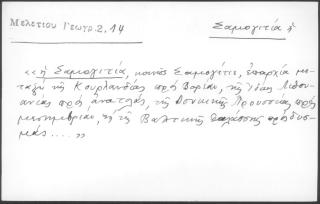 Μελετίου Γεωγρ. 2, 14
Σαμογιτία ἡ
«ἡ Σαμογιτία, κοινῶς Σαμογίτις, ἐπαρχία με-
ταξὺ τῆς Κουρλανδίας πρὸς Βορρᾶν, τῆς ἰδίας Λιθου-
ανίας πρὸς ἀνατολάς, τῆς Δουκικῆς Προυσσίας πρὸς
μεσημβρίαν, καὶ τῆς Βαλτικῆς θαλάσσης πρὸς δυσ-
μάς....»